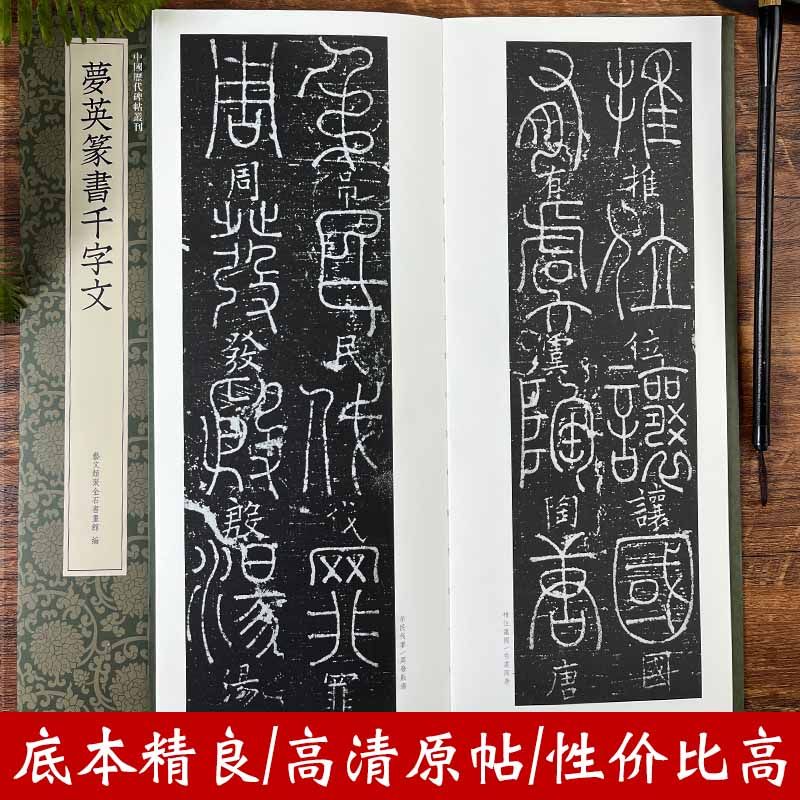 中國歷代碑帖叢刊
夢英篆書千字文
藝文類聚金石書畫館 編
推推位位讓讓國國
有有虞虞陶陶唐唐
推位讓國/有虞陶唐
弔弔民民伐伐罪罪
周周發發殷殷湯湯
弔民伐罪/周發殷湯
底本精良/高清原帖/性价比高